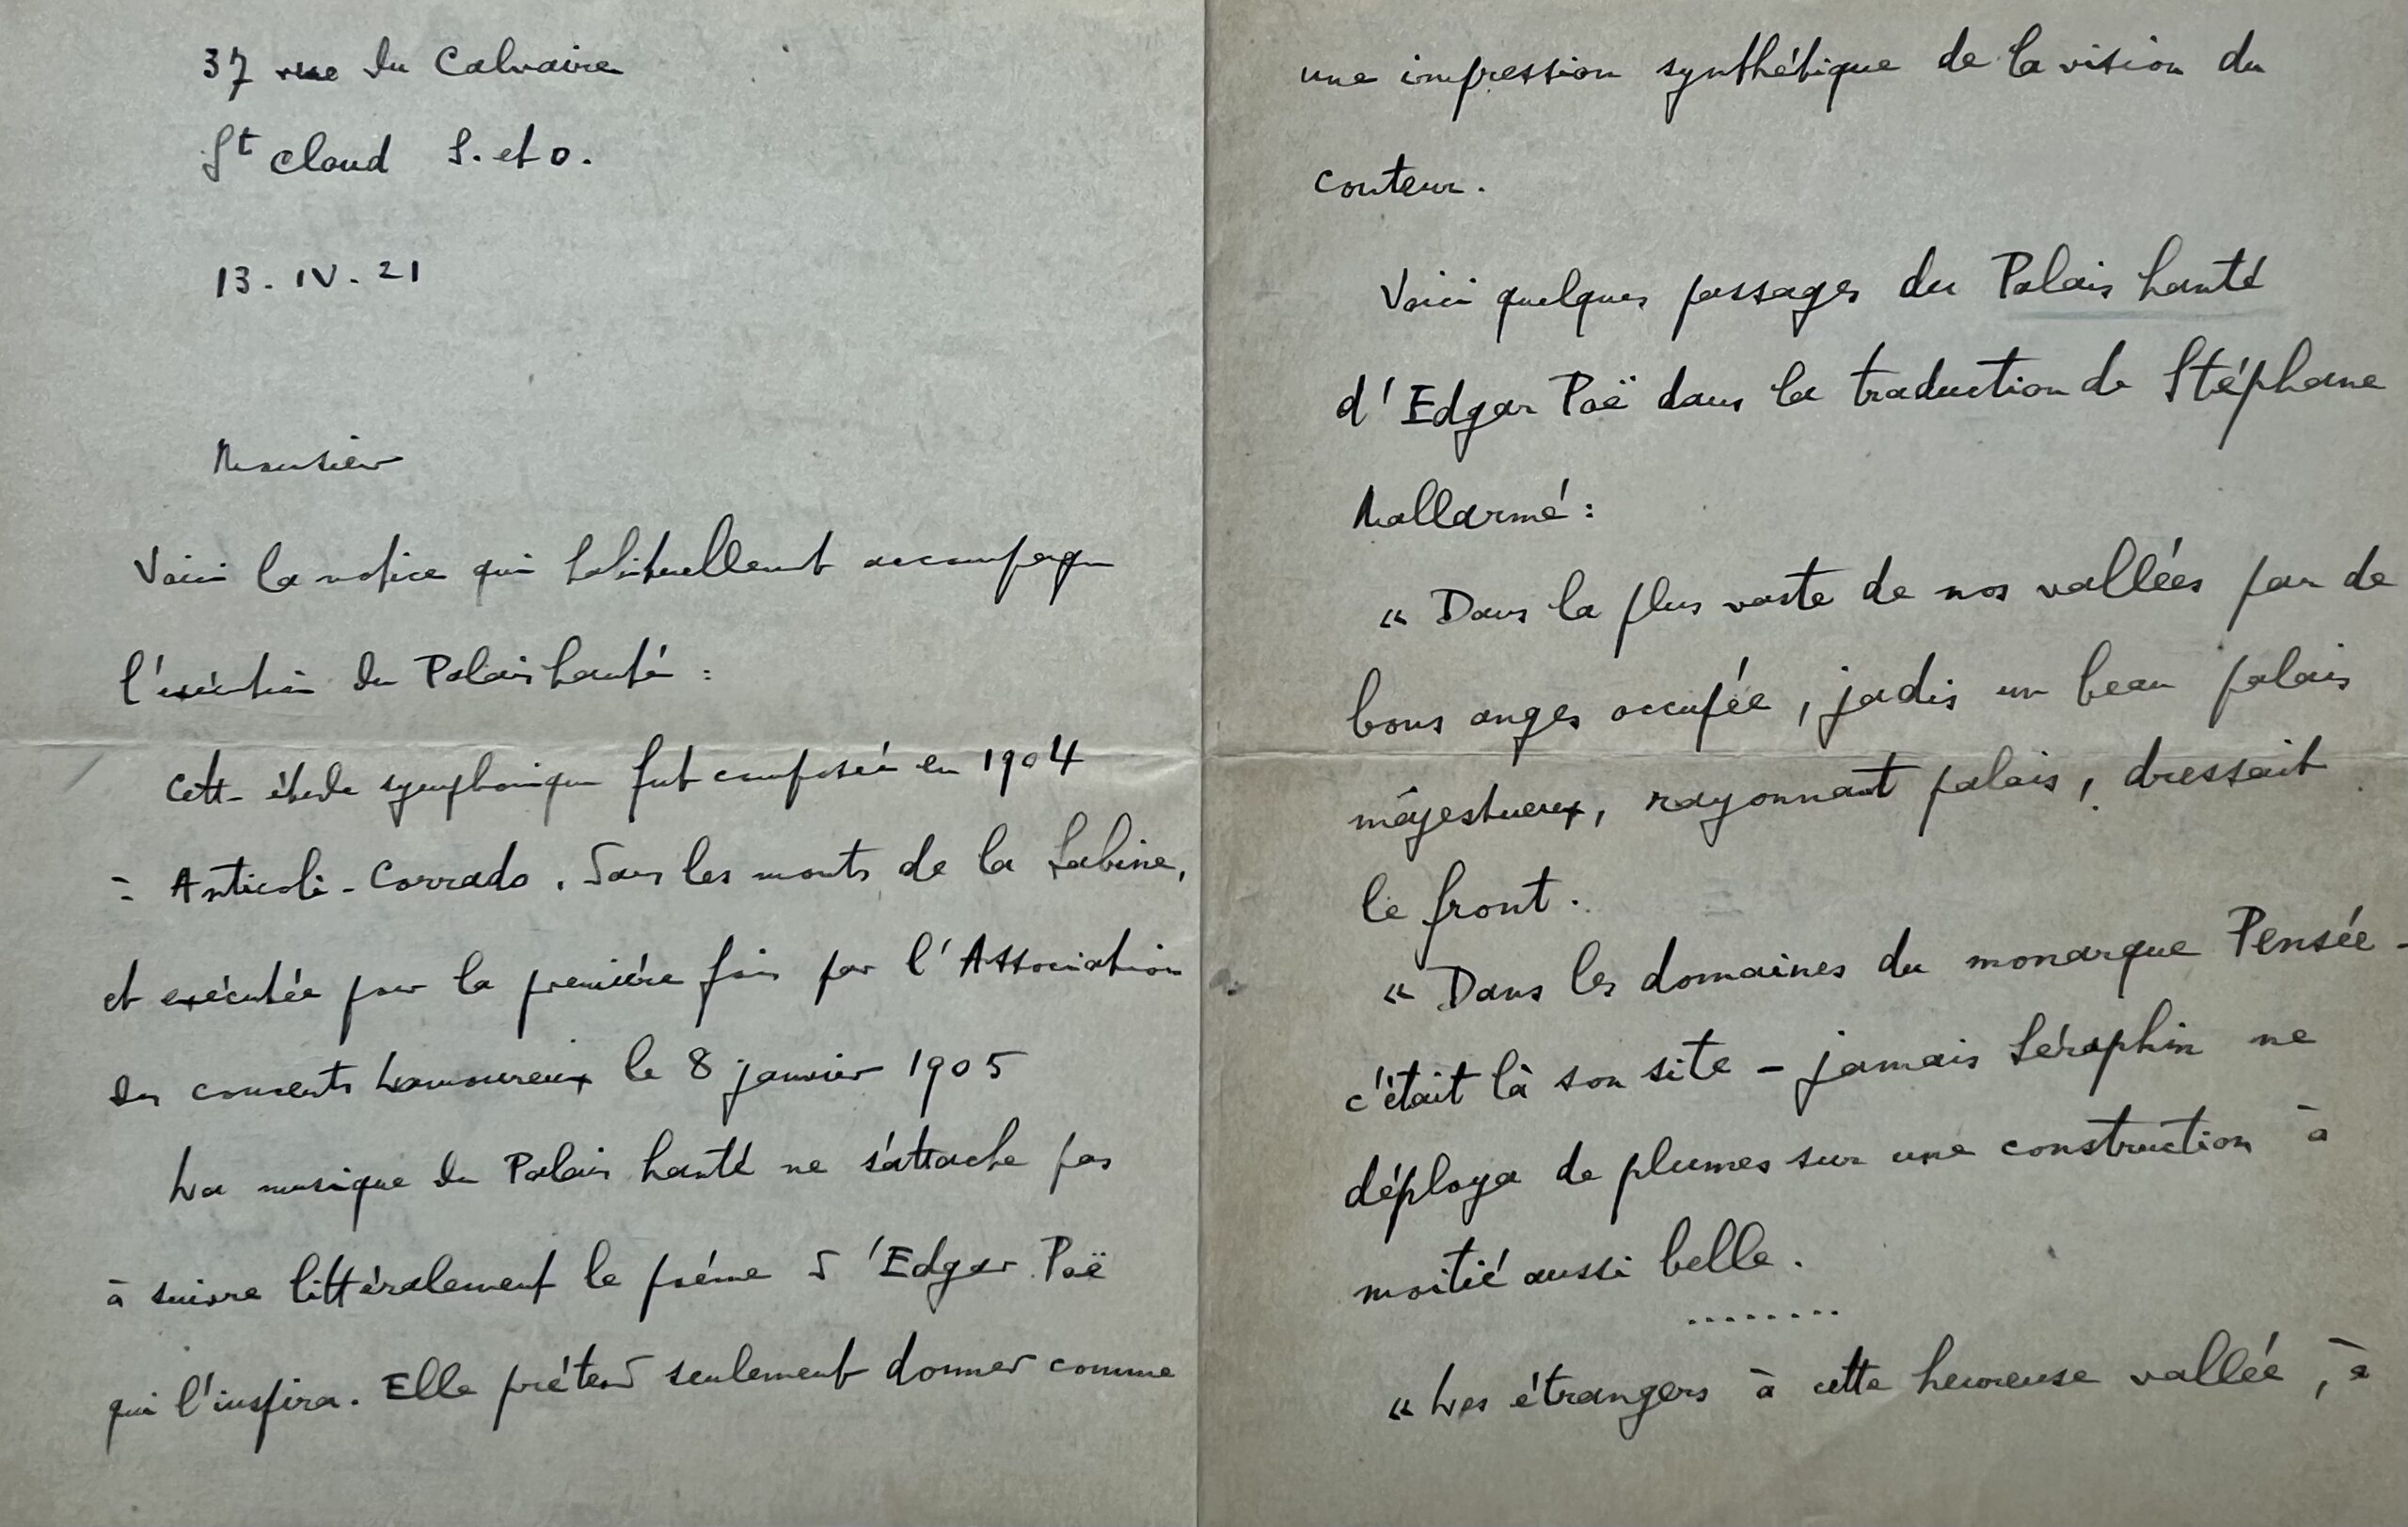 37 rue du Calvaire
St Cloud S. et O.
13. IV. 21
Monsieur
Voici la notice qui habituellement accompagne
l'exécution du Palais hanté :
Cette étude symphonique fut composée en 1904
à Anticoli-Corrado. Dans les monts de la Sabine,
et exécutée pour la première fois par l'Association
des concerts Lamoureux le 8 janvier 1905
La musique du Palais hanté ne s'attache pas
à suivre littéralement le poéme d'Edgar Poë
qui l'inspira. Elle prétend seulement donner comme
une impression synthétique de la vision du
conteur.
Voici quelques passages du Palais hanté
d'Edgar Poë dans la traduction de Stéphane
Mallarmé :
« Dans la plus vaste de nos vallées par de
bons anges occupée, jadis un beau palais
majestueux, rayonnant palais, dressait
le front.
« Dans les domaines du monarque Pensée -
c'était là son site - jamais Séraphin ne
déploya de plumes sur une construction à
moitié aussi belle.
........
« Les étrangers à cette heureuse vallée, à